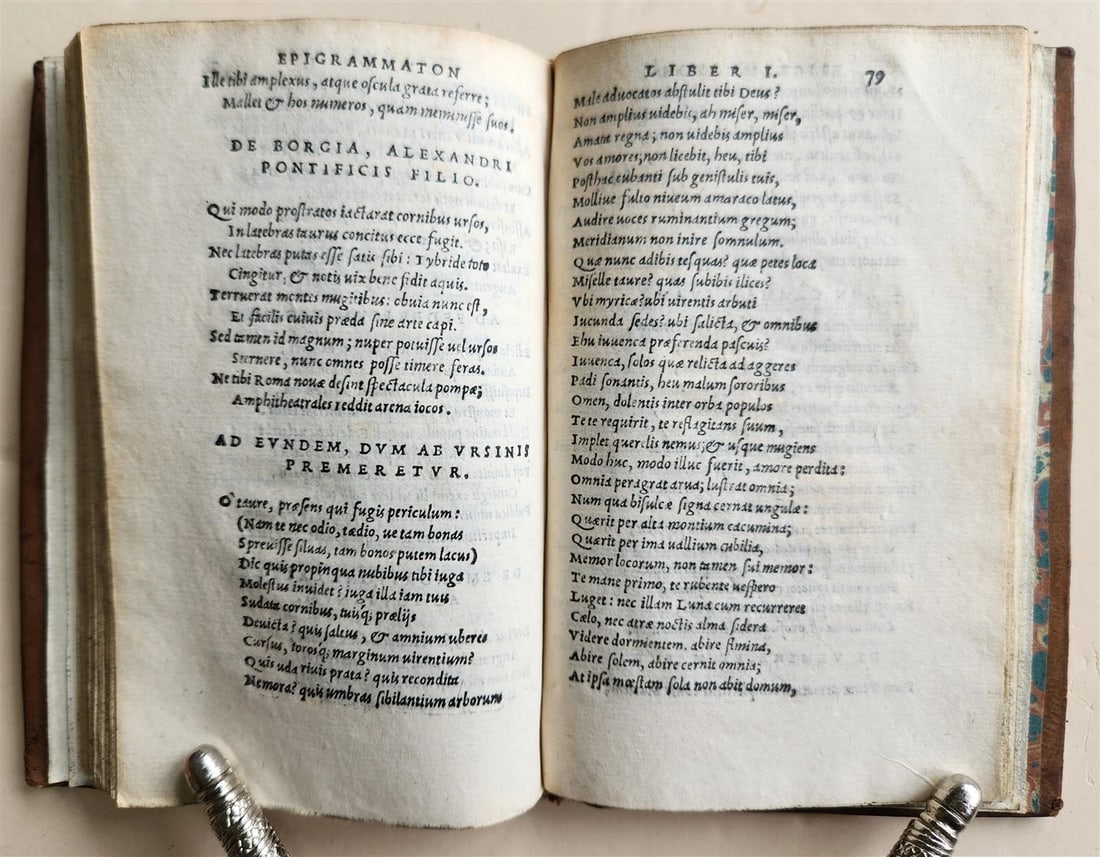 EPIGRAMMATON
Ille tibi amplexus, atque oscula grata referre;
Mallet & hos numeros, quam meminisse suos.
DE BORGIA, ALEXANDRI
PONTIFICIS FILIO.
Qui modo prostratos iactarat cornibus ursos,
In latebras taurus concitus ecce fugit.
Nec latebras putat esse satis sibi: Tybride toto
Cingitur, & notis uix bene fidit aquis.
Terruerat montes mugitibus: obuia nunc est,
Et facilis cuiuis præda sine arte capi.
Sed tamen id magnum; nuper potuisse uel ursos
Sternere, nunc omnes posse timere feras.
Ne tibi Roma nouæ desint spectacula pompæ;
Amphitheatrales reddit arena iocos.
AD EVNDEM, DVM AB VRSINIS
PREMERETVR.
O' taure, præsens qui fugis periculum:
(Nam te nec odio, tædio, ue tam bonas
Spreuisse siluas, tam bonos putem lacus)
Dic quis propinqua nubibus tibi iuga
Molestus inuidet? iuga illa iam tuis
Sudata cornibus, tuisq; prælijs
Deuicta? quis saltus, & amnium uberes
Cursus, torosq; marginum uirentium?
Quis uda riuis prata? quis recondita
Nemora? quis umbras sibilantium arborum
LIBER I. 79
Male aduocatos abstulit tibi Deus?
Non amplius uidebis, ah miser, miser,
Amata regna; non uidebis amplius
Vos amores; non licebit, heu, tibi
Posthac cubanti sub genistulis tuis,
Molliue fulto niueum amaraco latus,
Audire uoces ruminantium gregum;
Meridianum non inire somnulum.
Quæ nunc adibis tesqua? quæ petes loca
Miselle taure? quas subibis ilices?
Vbi myricæ? ubi uirentis arbuti
Iucunda sedes? ubi salicta, & omnibus
Ehu iuuenca præferenda pascuis?
Iuuenca, solos quæ relicta ad aggeres
Padi sonantis, heu malum sororibus
Omen, dolentis inter orba populos
Te te requirit, te reflagitans suum,
Implet querelis nemus; & usque mugiens
Modo huc, modo illuc fuerit, amore perdita:
Omnia peragrat arua; lustrat omnia;
Num qua bisulcæ signa cernat ungulæ:
Quærit per alta montium cacumina;
Quærit per ima uallium cubilia,
Memor locorum, non tamen sui memor:
Te mane primo, te rubente uespero
Luget: nec illam Luna cum recurreret
Cælo, nec atræ noctis alma sidera
Videre dormientem. abire flmina,
Abire solem, abire cernit omnia;
At ipsa mœstam sola non abit domum,